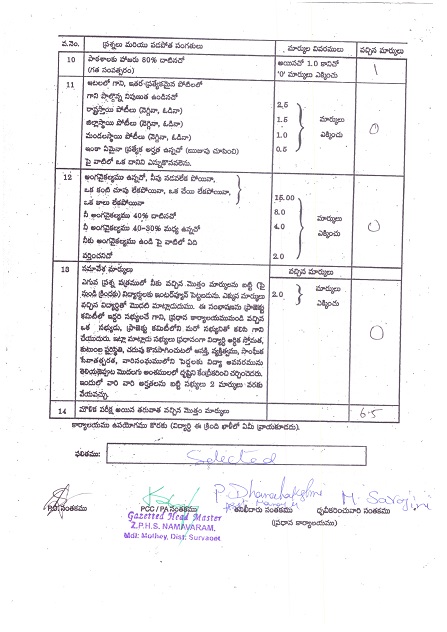 వ.నెం. ప్రశ్నలు మరియు పదపోత సంగతులు మార్కుల వివరములు వచ్చిన మార్కులు
10 పాఠశాలకు హాజరు 80% దాటినచో అయినచో 1.0 కానిచో 1
(గత సంవత్సరం) '0' మార్కులు ఎక్కించు
11 ఆటలలో గాని, ఇతర ప్రత్యేకమైన పోటీలలో
గాని పాల్గొన్న నిపుణత ఉండినచో
రాష్ట్రస్థాయి పోటీలు (నెగ్గినా, ఓడినా) 2.5
జిల్లాస్థాయి పోటీలు (నెగ్గినా, ఓడినా) 1.5 మార్కులు 0
మండలస్థాయి పోటీలు (నెగ్గినా, ఓడినా) 1.0 ఎక్కించు
ఇంకా ఏమైనా ప్రత్యేక అర్హత ఉన్నచో (ఋజువు చూపించి) 0.5
పై వాటిలో ఒక దానిని ఎన్నుకొనవలెను.
12 అంగవైకల్యము ఉన్నచో, నీవు నడవలేక పోయినా,
ఒక కంటి చూపు లేకపోయినా, ఒక చేయి లేకపోయినా,
ఒక కాలు లేకపోయినా 15.00
నీ అంగవైకల్యము 40% దాటినచో 8.0 మార్కులు 0
నీ అంగవైకల్యము 40-30% మధ్య ఉన్నచో 4.0 ఎక్కించు
నీకు అంగవైకల్యము ఉండి పై వాటిలో ఏది
వర్తించనిచో 2.0
13 సమావేశ మార్కులు వచ్చిన మార్కులు
ఎగువ ప్రశ్న పత్రములో నీకు వచ్చిన మొత్తం మార్కులను బట్టి (పై
నుండి క్రిందకు) విద్యార్థులకు ఇంటర్వ్యూస్ పెట్టబడును. ఎక్కువ మార్కులు 2.0 మార్కులు
వచ్చిన విద్యార్థితో మొదటి మాట్లాడుదుము. ఈ సంభాషణను ప్రాజెక్టు ఎక్కించు
కమిటీలో ఇద్దరి సభ్యులచే గాని, ప్రధాన కార్యాలయమునుండి వచ్చిన 0
ఒక సభ్యుడు, ప్రాజెక్టు కమిటీలోని మరో సభ్యునితో కలిసి గాని
చేయుదురు. ఇట్లా మాట్లాడు సభ్యులు ప్రధానంగా విద్యార్థి ఆర్థిక స్తోమత,
కుటుంబ పరిస్థితి, చదువు కొనసాగించుటలో ఆసక్తి, వ్యక్తిత్వము, సాంఘిక
ఇందులో వారి వారి అర్హతలను బట్టి సభ్యులు 2 మార్కులు వరకు
వేయవచ్చు.
14 మౌలిక పరీక్ష అయిన తరువాత వచ్చిన మొత్తం మార్కులు 6.5
కార్యాలయము ఉపయోగము కొరకు (విద్యార్థి ఈ క్రింది ఖాళీలో ఏమీ వ్రాయకూడదు).
ఫలితము: Selected
P. Dhanalakshmi M. Sarojini
PCC / PA సంతకము సంతకము ధృవీకరించువారి సంతకము
Gazetted Head Master (ప్రధాన కార్యాలయము)
Z.P.H.S. NAMAVARAM.
Mdl: Mothey, Dist: Suryapet